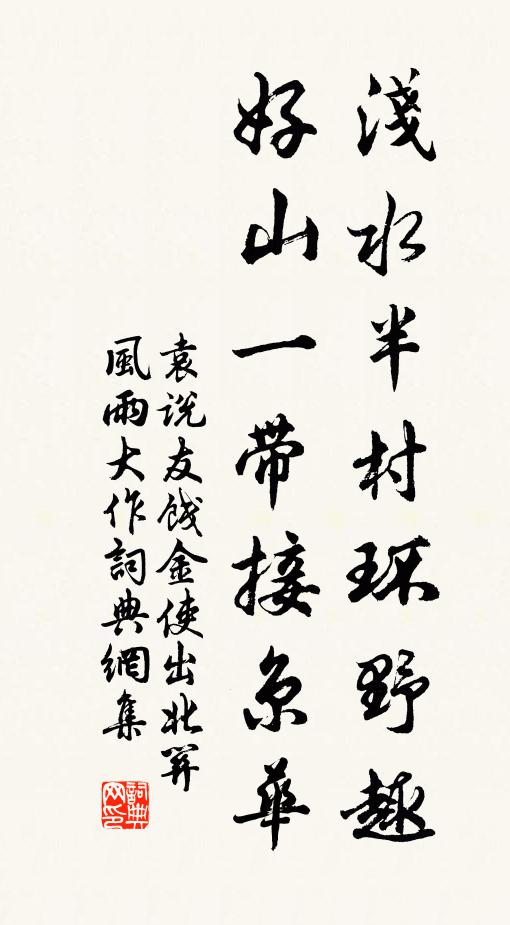 淺水半村环野趣
好山一带接京華
袁说友餞金使出北関
風雨大作詞典網集
詞典
网印